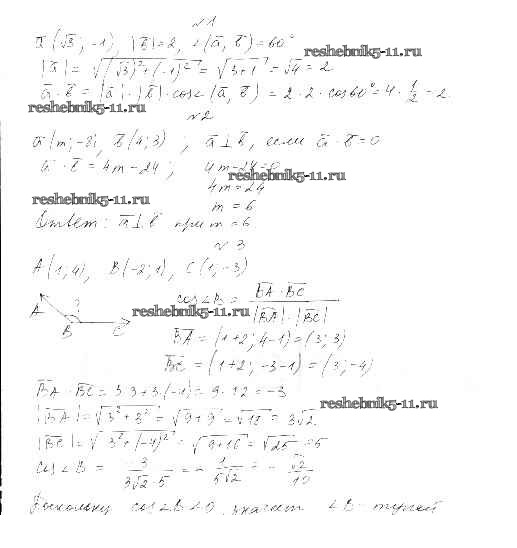 №1
ā(√3; -1), |b̄|=2, ∠(ā, b̄)=60°
reshebnik5-11.ru
|ā| = √((√3)²+(-1)²) = √(3+1) = √4 = 2
ā · b̄ = |ā|·|b̄|·cos(ā, b̄) = 2·2·cos60° = 4·1/2 = 2
reshebnik5-11.ru
№2
ā(m; -8), b̄(4; 3) ; ā⊥b̄, если ā·b̄=0
ā·b̄ = 4m-24; 4m-24=0
reshebnik5-11.ru
4m=24
reshebnik5-11.ru
m = 6
Ответ: ā⊥b̄ при m=6
№3
A(1; 4), B(-2; 1), C(1; -3)
cos∠B = BA·BC / |BA|·|BC|
A ? B C
reshebnik5-11.ru
BA = (1+2; 4-1) = (3; 3)
BC = (1+2; -3-1) = (3; -4)
BA·BC = 3·3+3·(-4) = 9-12 = -3
reshebnik5-11.ru
|BA| = √(3²+3²) = √(9+9) = √18 = 3√2
|BC| = √(3²+(-4)²) = √(9+16) = √25 = 5
cos∠B = 3/(3√2·5) = -1/(5√2) = -√2/10
Поскольку cos∠B<0, значит ∠B - тупой